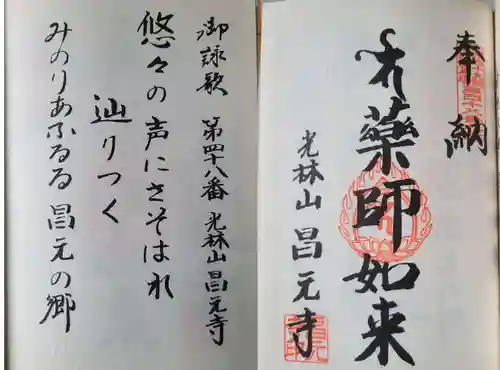 奉納
お薬師如来
光林山 昌元寺
御詠歌 第四十八番 光林山 昌元寺
悠々の声にさそはれ
辿りつく
みのりあふるる 昌元の郷